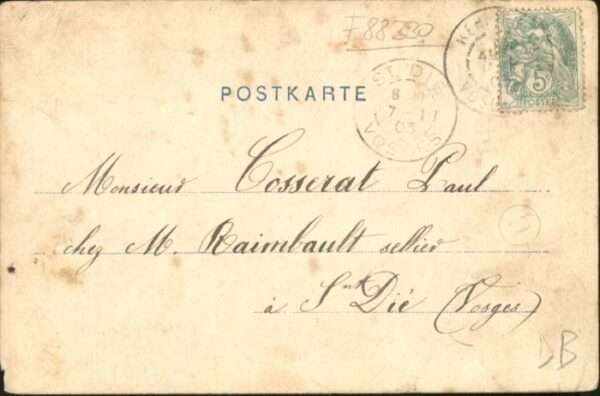 F88
POSTKARTE
ST DIÉ
8
7 11
03
VOSGES
5
POSTES
Monsieur Cosserat Paul
chez M. Raimbault sellier
à Snt Dié (Vosges)
3
DB